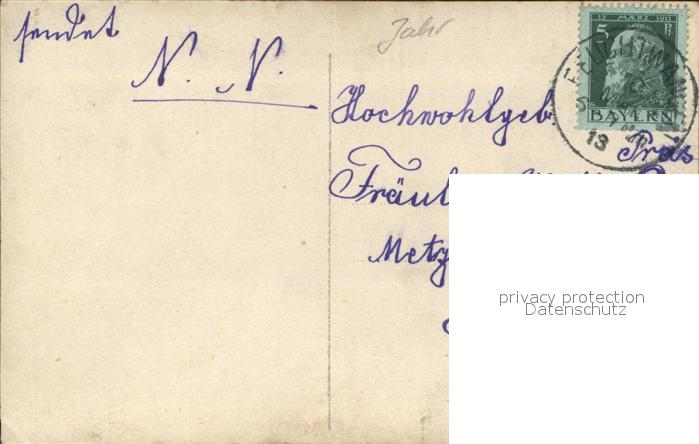 sendet
N. N.
Jahr
12 MÄRZ 1911
5 Pf
BAYERN
13
Hochwohlgeb.
Präs
Fräul
Metz
privacy protection
Datenschutz